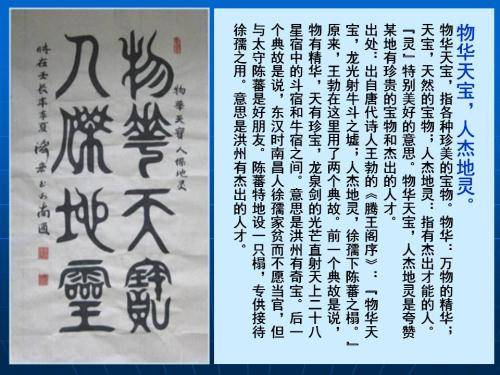 物华天宝，人杰地灵。
物华天宝，指各种珍美的宝物。物华：万物的精华；
天宝，天然的宝物；人杰地灵：指有杰出才能的人。
『灵』特别美好的意思。物华天宝，人杰地灵是夸赞
某地有珍贵的宝物和杰出的人才。
出处：出自唐代诗人王勃的《腾王阁序》：『物华天
宝，龙光射牛斗之墟；人杰地灵，徐孺下陈蕃之榻。』
原来，王勃在这里用了两个典故。前一个典故是说，
物有精华，天有珍宝，龙泉剑的光芒直射天上二十八
星宿中的斗宿和牛宿之间。意思是洪州有奇宝。后一
个典故是说，东汉时南昌人徐孺家贫而不愿当官，但
与太守陈蕃是好朋友。陈蕃特地设一只榻，专供接待
徐孺之用。意思是洪州有杰出的人才。
物華天寶 人傑地灵
物華天寶
人傑地靈